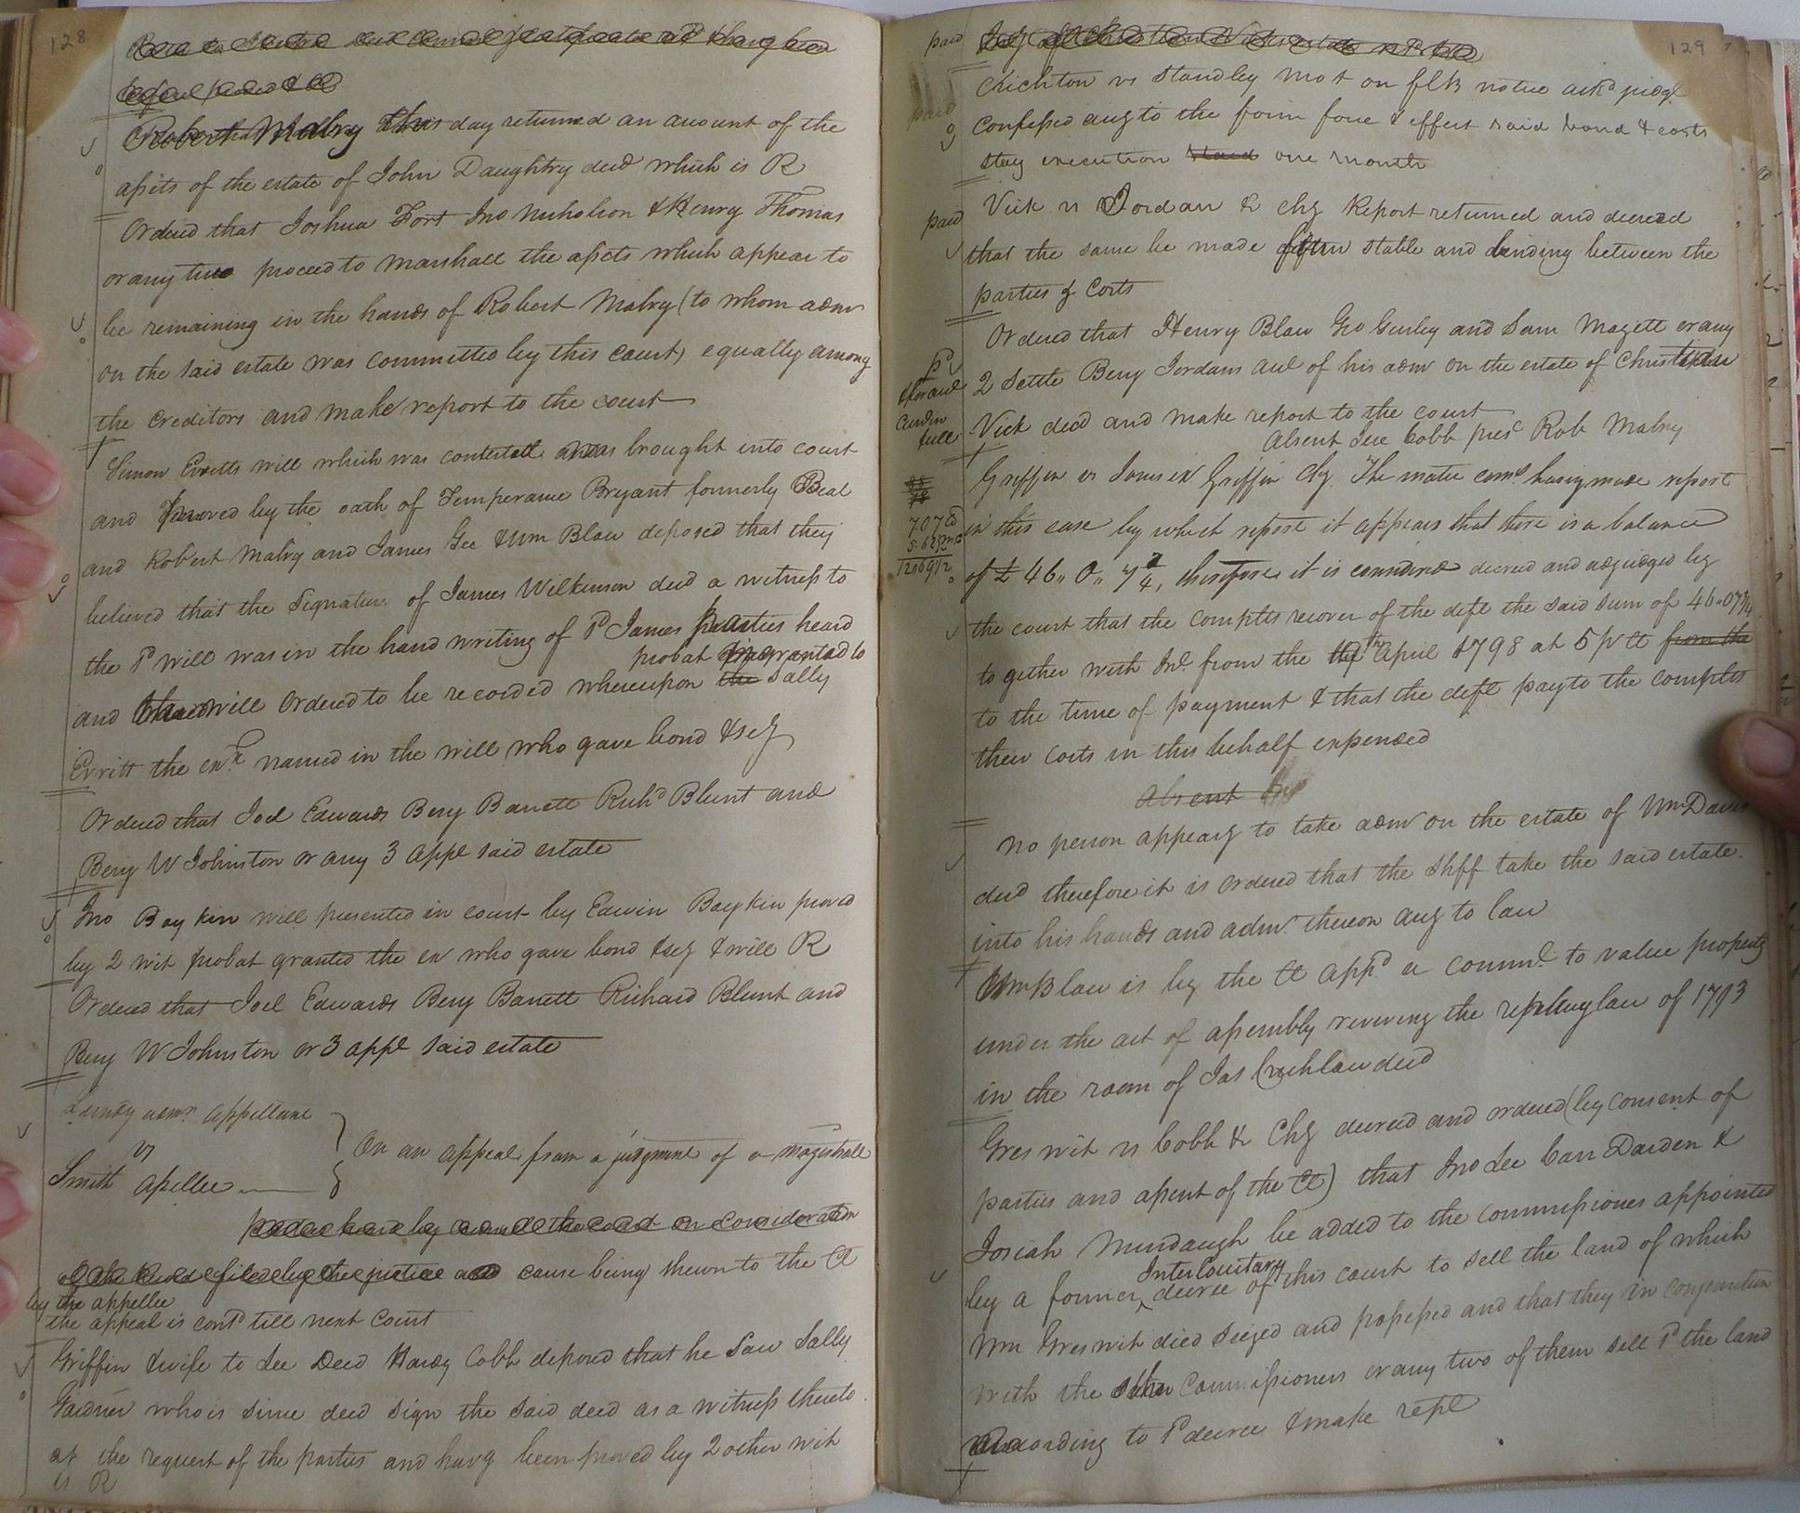 128
Robert Mabry this day returned an amount of the
assets of the estate of John Daughtry decd which is R
Ordered that Joshua Fort Jno Nicholson & Henry Thomas
or any two proceed to marshall the assets which appear to
be remaining in the hands of Robert Mabry (to whom admn
on the said estate was committed by this court) equally among
the creditors and make report to the court
Simon Evritts will which was contested was brought into court
and proved by the oath of Temperance Bryant formerly Beal
and Robert Mabry and James Gee & Wm Blow deposed that they
believed that the Signature of James Wilkinson decd a witness to
the Sd will was in the hand writing of Sd James parties heard
probat granted to
and will Ordered to be recorded whereupon the Sally
Evritt the exx named in the will who gave bond & scy
Ordered that Joel Edwards Benj Barrett Richd Blunt and
Benj W Johnston or any 3 appe said estate
Jno Boykin will presented in court by Edwin Boykin proved
by 2 wit probat granted the ex who gave bond & scy & will R
Ordered that Joel Edwards Benj Barrett Richard Blunt and
Benj W Johnston or 3 appe said estate
Lundy admr appellant
vs
On an appeal from a judgment of a magistrate
Smith apellee
on consideration
cause being shewn to the Ct
by the appellee
the appeal is contd till next court
Griffin & wife to Lee Deed Hardy Cobb deposed that he saw Sally
Gardner who is since decd sign the said deed as a witness thereto
at the request of the parties and havg been proved by 2 other wit
is R
129
paid
Crichton vs Standley mot on flk notice ackd judgt
paid
confessed accg to the form force & effect said bond & costs
stay execution staid one month
paid
Vick vs Jordan & chy Report returned and decreed
that the same be made firm stable and binding between the
parties & costs
Ordered that Henry Blow Geo Gurley and Sam Magett or any
2 Settle Benj Jordans acc of his admn on the estate of Christian
Vick decd and make report to the court
Absent pres Rob Mabry
Griffin vs Jones ex Griffin Chy The matie comr having made report
in this case by which report it appears that there is a balance
of £ 46,, 0,, 7 3/4, therefore it is considered decreed and adjudged by
the court that the complts recover of the deft the said sum of 46.0 7 3/4
together with Int from the April 1798 at 5 p Ct from the
to the time of payment & that the deft pay to the complts
their costs in this behalf expended
Absent
no person appearg to take admn on the estate of Wm Davis
decd therefore it is Ordered that the Shff take the said estate
into his hands and admr thereon accg to law
Wm Blow is by the Ct appd a commr to value property
under the act of assembly reviving the law of 1793
in the room of Jas Crichlow decd
Greswit vs Cobb & Chy decreed and ordered (by consent of
parties and assent of the Ct) that Jno Lee Carr Darden &
Josiah Mundaugh be added to the commissioners appointed
Interlocutary
by a former decree of this court to sell the land of which
Wm Greswit died Seized and possessed and that they in conjunction
with the other Commissioners or any two of them sell Sd the land
according to Sd decree & make repe